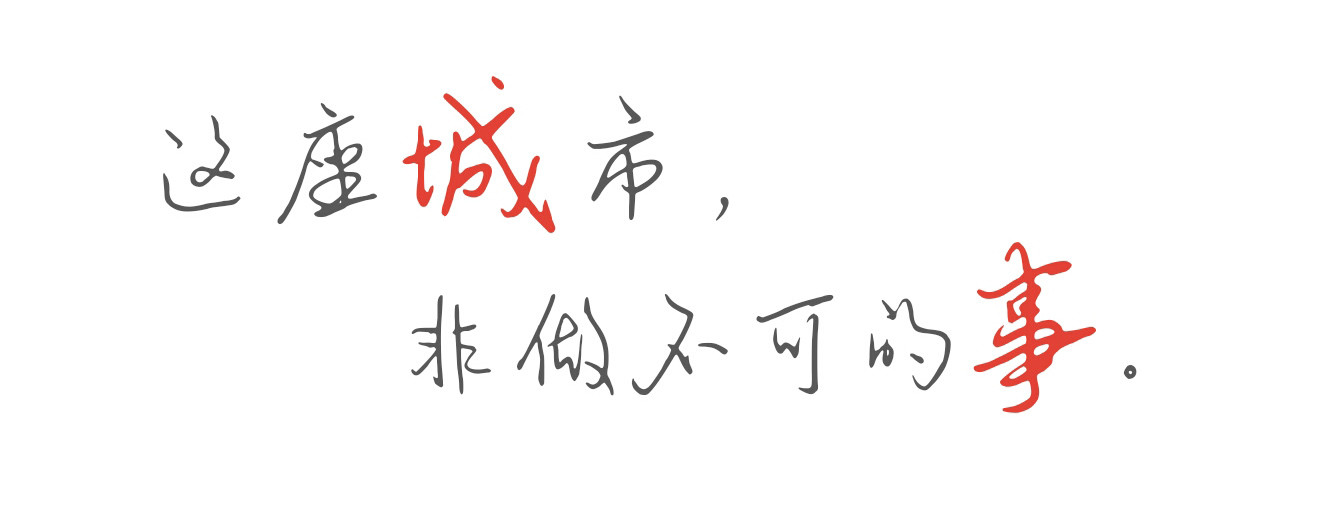 这座城市，
非做不可的事。